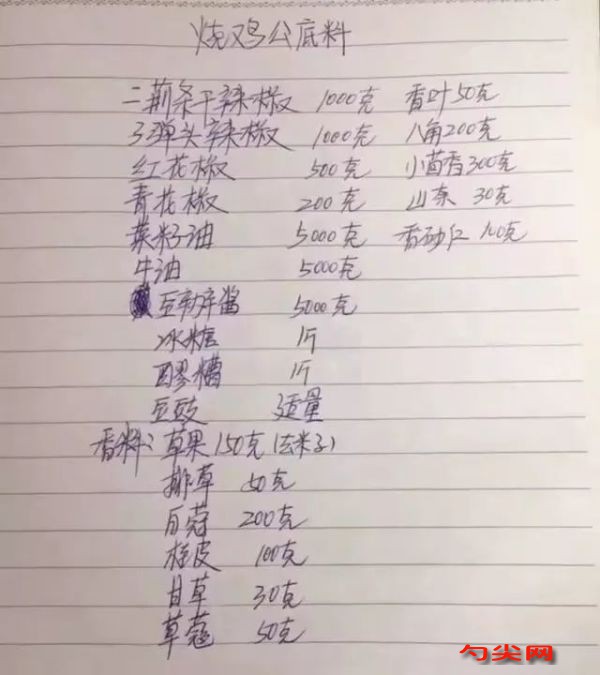 烧鸡公底料
二荆条干辣椒 1000克 香叶50克
子弹头辣椒 1000克 八角200克
红花椒 500克 小茴香300克
青花椒 200克 山奈 30克
菜籽油 5000克 香砂仁 100克
牛油 5000克
豆瓣酱 5000克
冰糖 1斤
醪糟 1斤
豆豉 适量
香料:草果150克(去籽)
排草 50克
白蔻 200克
桂皮 100克
甘草 30克
草蔻 50克
勺尖网